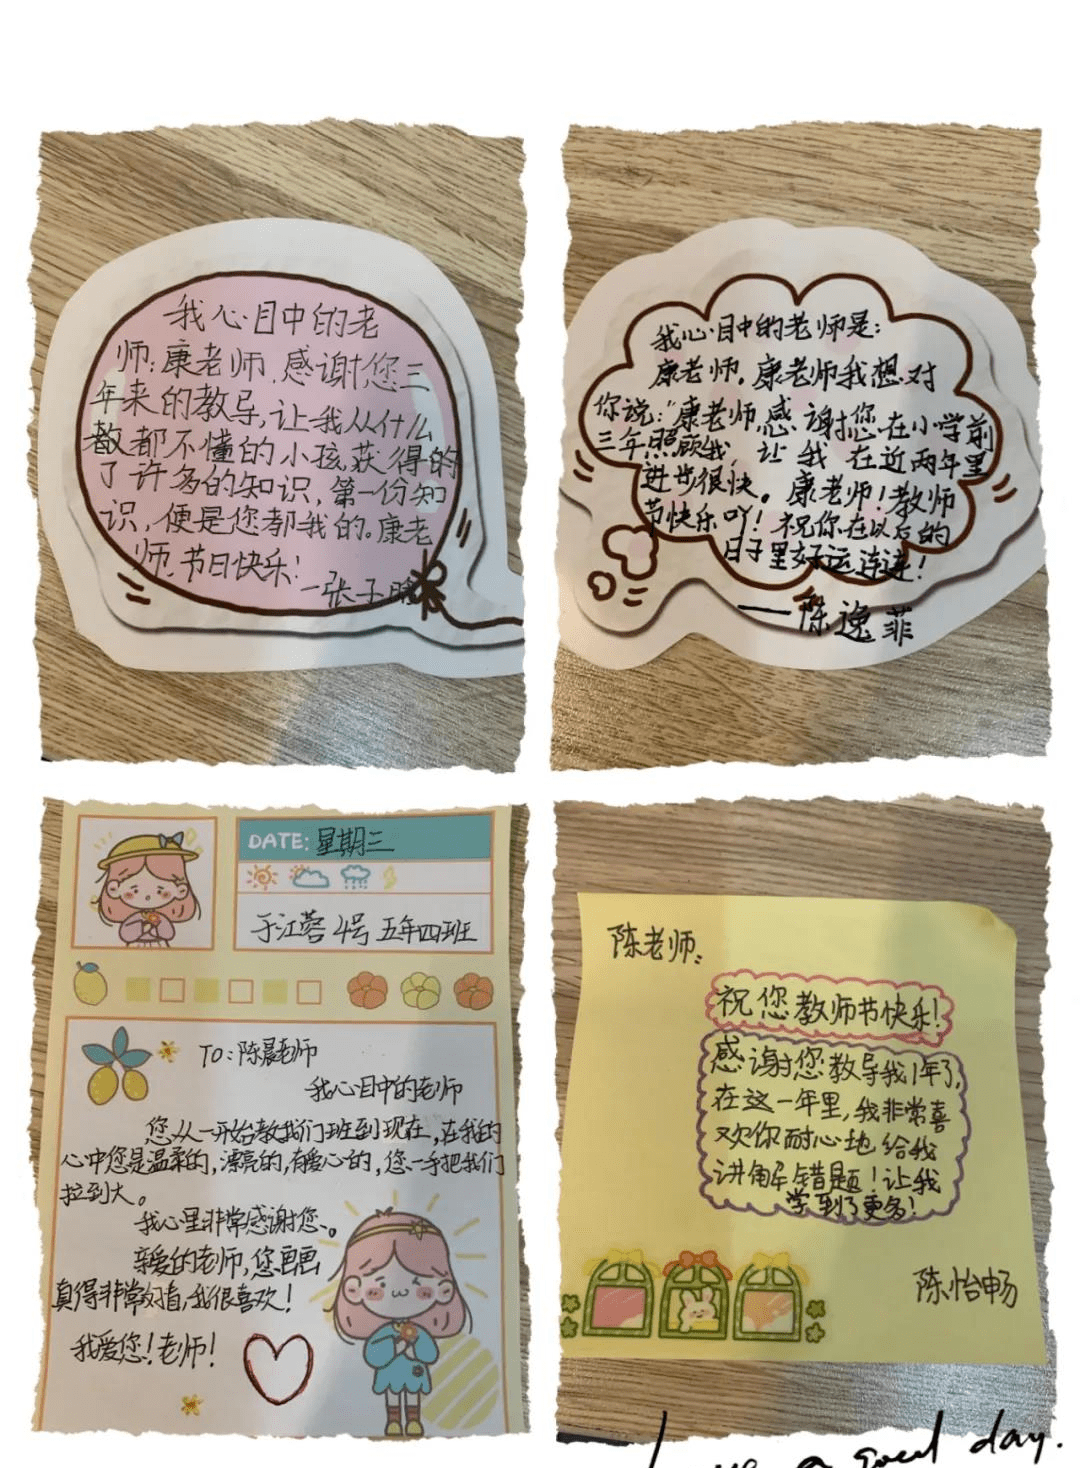 我心目中的老
师:康老师.感谢您三
年来的教导,让我从什么
都不懂的小孩,获得的
了许多的知识,第一份知
识,便是您教我的。康老
师,节日快乐!
—张子
我心目中的老师是:
康老师。康老师我想对
你说:"康老师,感谢您在小学前
三年照顾我,让我在近两年里
进步很快。康老师!教师
节快乐吖!祝你在以后的
日子里好运连连!
——陈逸菲
DATE: 星期三
于江蓉 4号 五年四班
TO:陈晨老师
我心目中的老师
您从一开始教我们班到现在,在我的
心中您是温柔的,漂亮的,有爱心的,您一手把我们
拉到大。
我心里非常感谢您。
亲爱的老师,您画画
真得非常好看,我很喜欢!
我爱您!老师!
陈老师:
祝您教师节快乐!
感谢您教导我1年了,
在这一年里,我非常喜
欢你耐心地给我
讲解错题!让我
学到了更多!
陈怡畅
a good day.